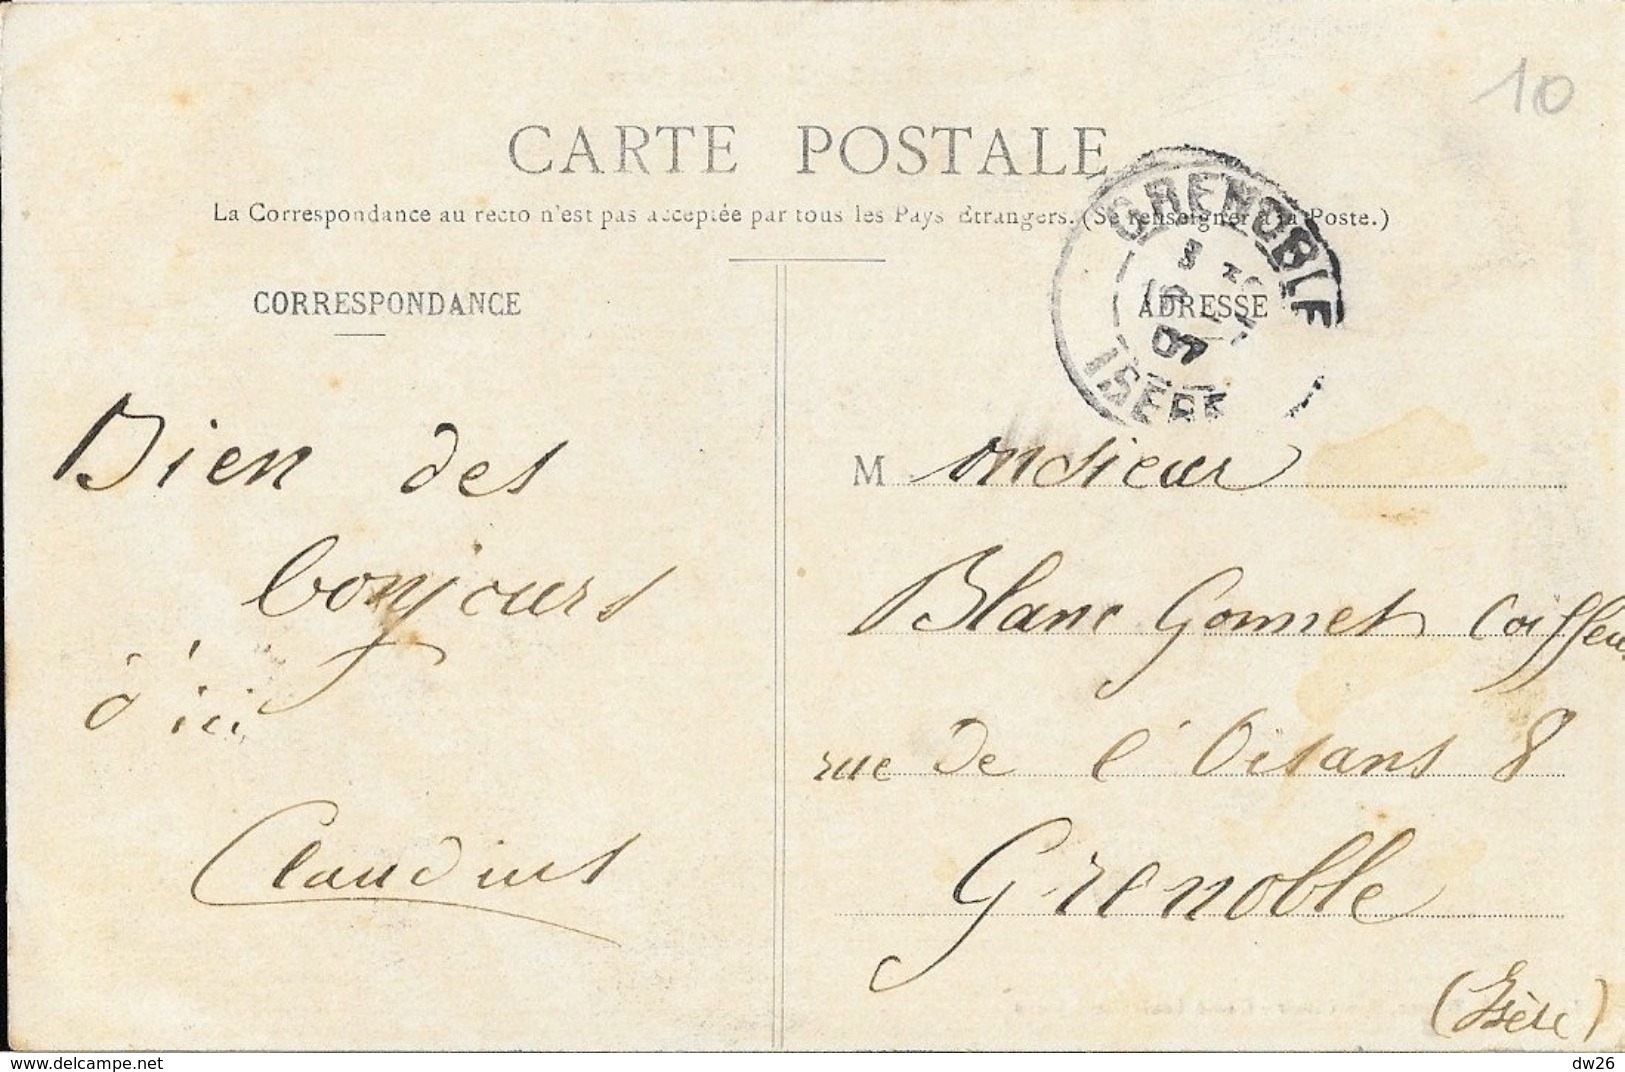 10
CARTE POSTALE
La Correspondance au recto n'est pas acceptée par tous les Pays Etrangers. (Se renseigner à la Poste.)
CORRESPONDANCE
ADRESSE
GRENOBLE
07
ISERE
Bien des
bonjours
d'ici
Claudius
Monsieur
Blanc Gonnet Coiffeur
rue de l'Oisans 8
Grenoble
(Isère)
delcampe.net
dw26